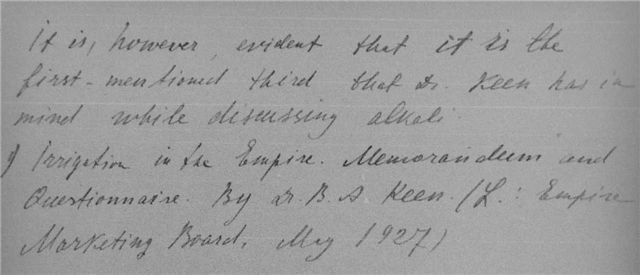 It is, however, evident that it is the
first-mentioned third that Dr. Keen has in
mind while discussing alkali.
1) Irrigation in the Empire. Memorandum and
Questionnaire. By Dr. B. A Keen. (L.: Empire
Marketing Board, May 1927)